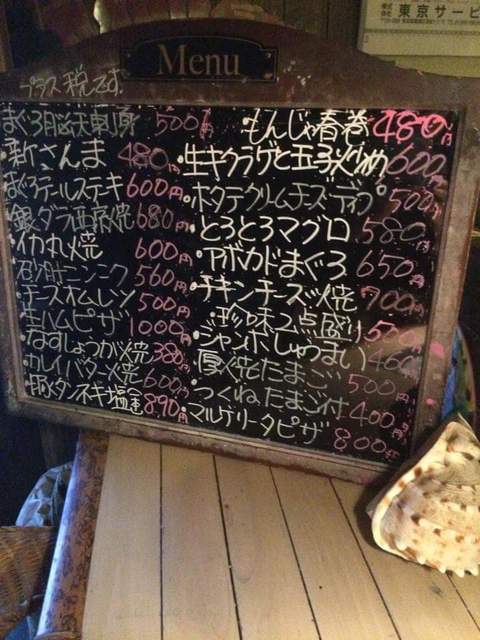 株式
会社
東京サービ
Menu
プラス税です。
まぐろ脳天刺身 500円
・新さんま 480円
まぐろテールステーキ 600円
・銀ダラ西京焼 680円
・イカ丸焼 600円
・砂肝ニンニク 560円
・チーズオムレツ 500円
・生ハムピザ 1000円
・なすしょうが焼 380円
・カレイバター焼 600円
・豚タンネギ塩 890円
・もんじゃ春巻 480円
・生キクラゲと玉子炒め 600円
・ホタテクリームチーズディップ 500円
・とろとろマグロ 580円
・アボカドまぐろ 650円
・チキンチーズ焼 700円
・珍味2点盛り 500円
・ジャンボしゅうまい 400円
・厚焼たまご 500円
・つくねたまご付 400円
・マルゲリータピザ 800円